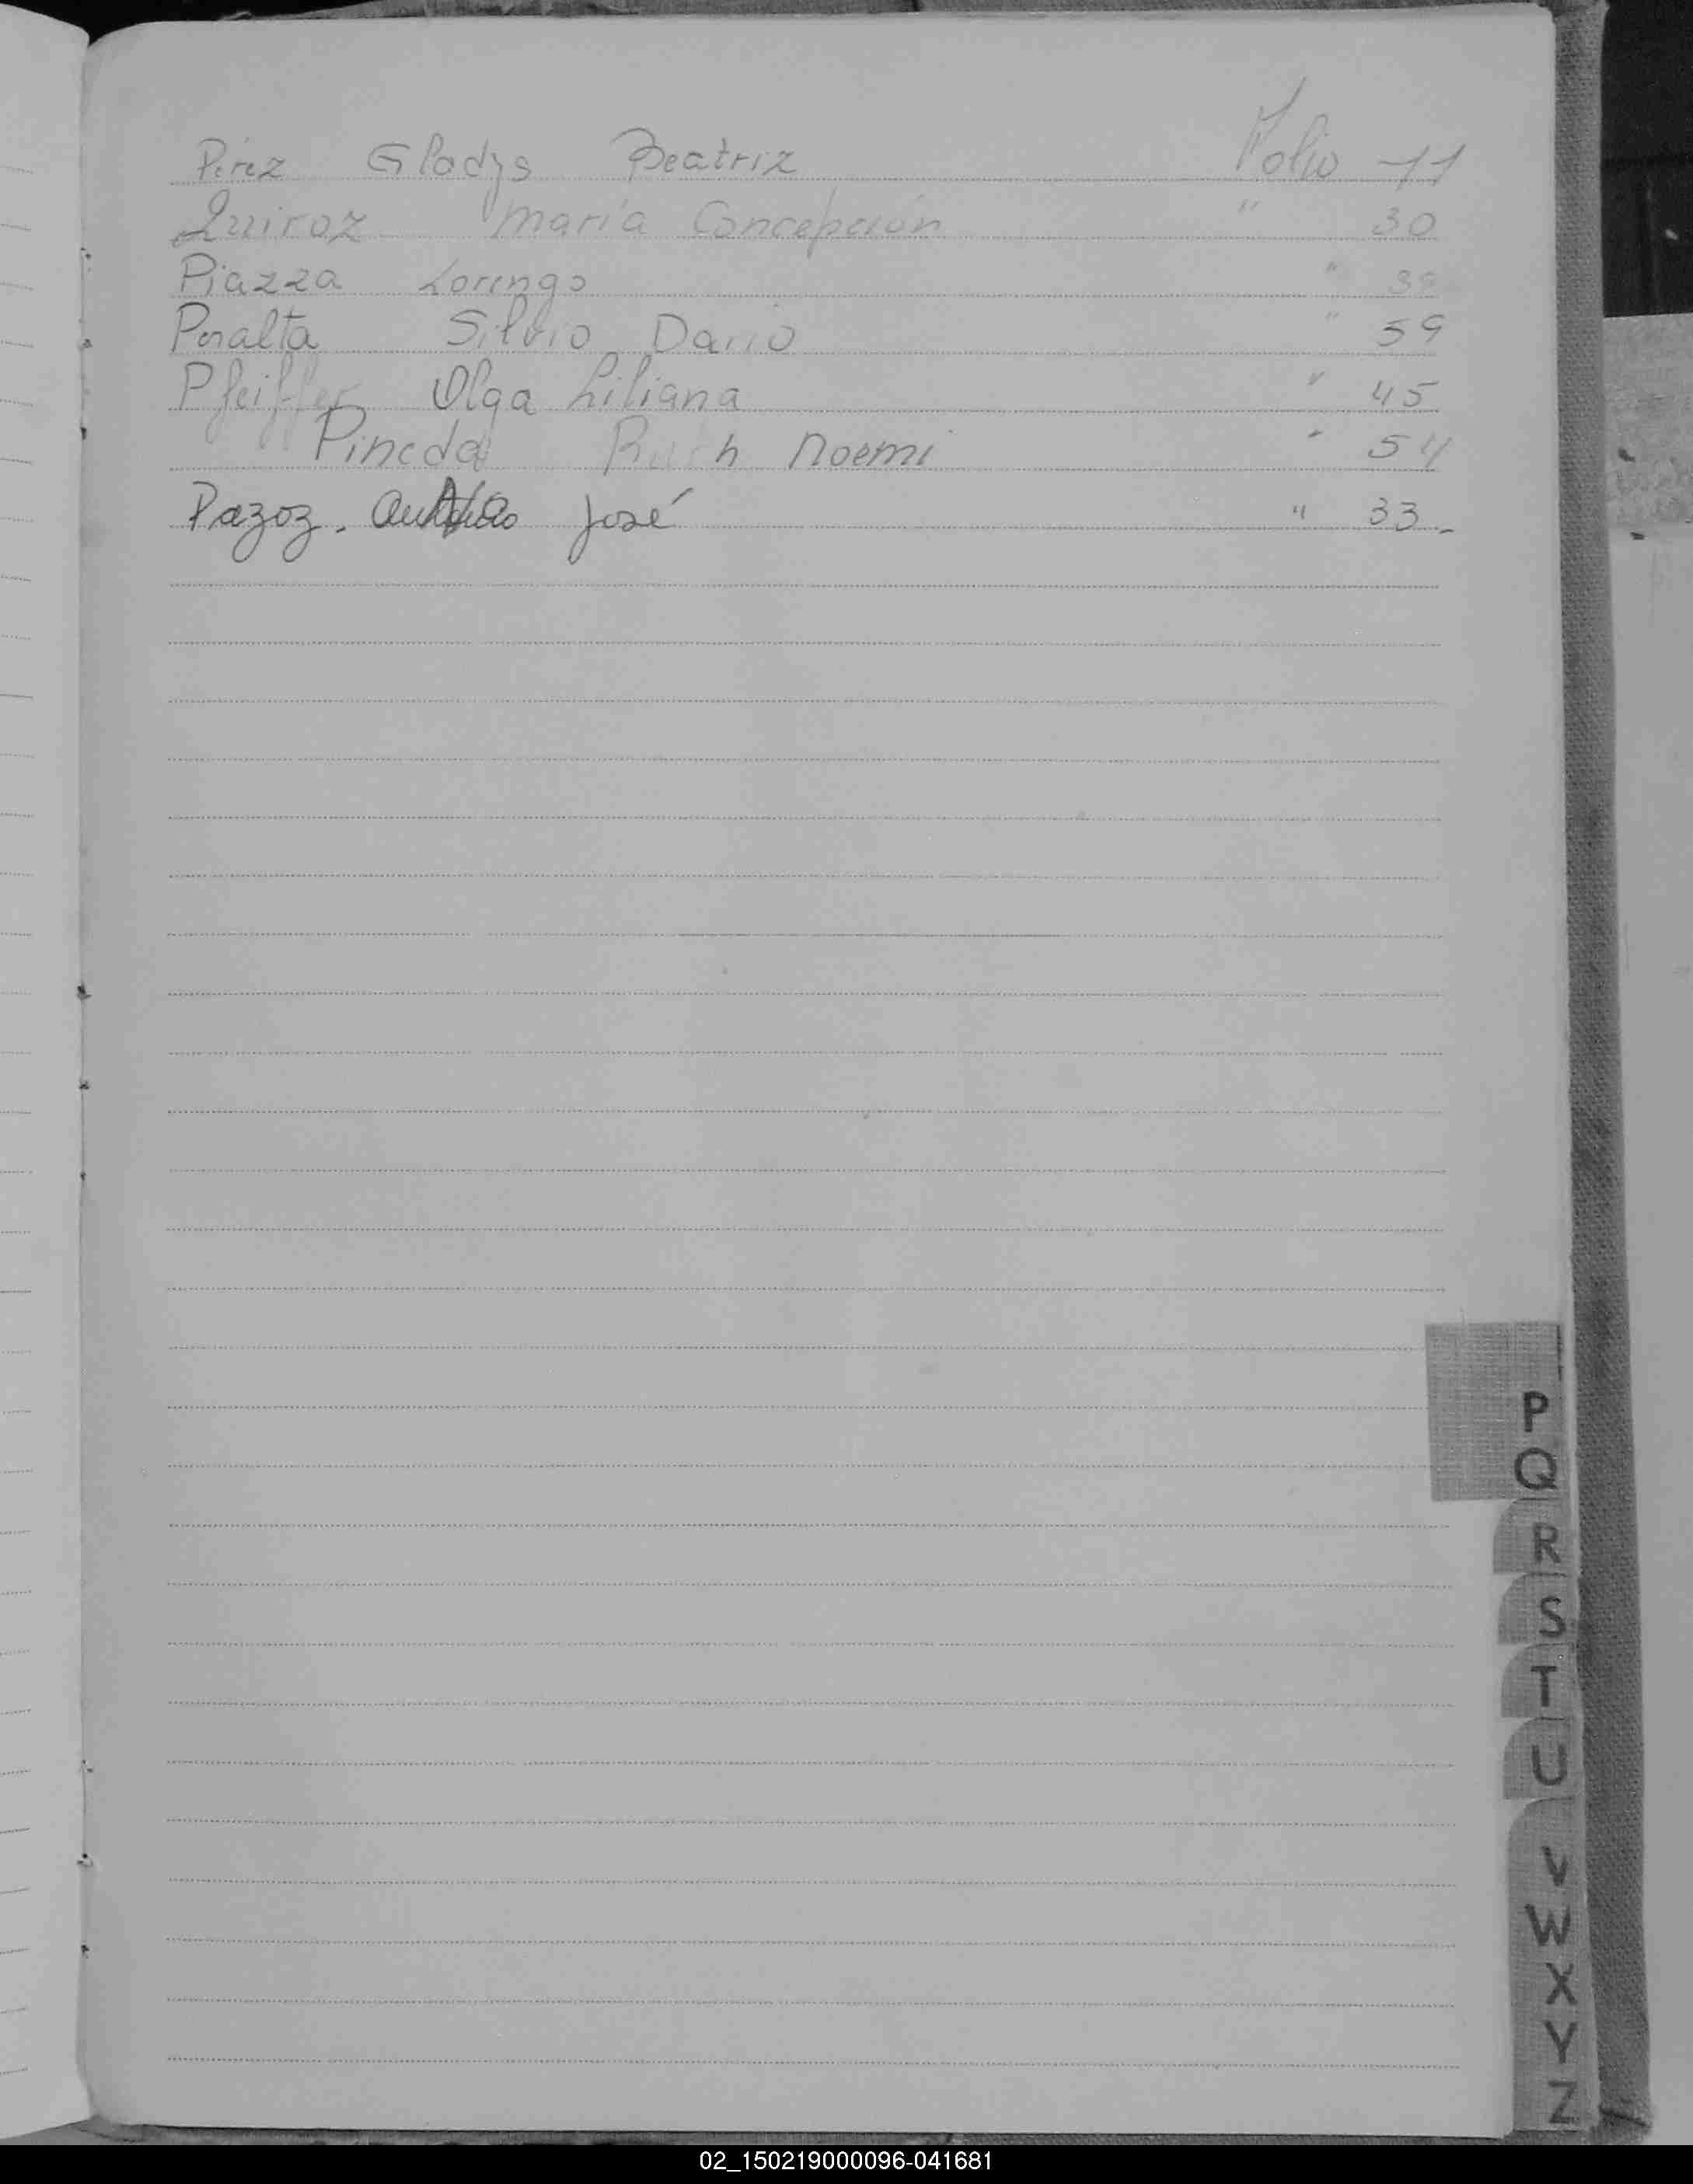 Pérez Gladys Beatriz Folio 11
Quiroz María Concepción " 30
Piazza Lorenzo " 39
Peralta Silvio Dario " 59
Pfeiffer Olga Liliana " 45
Pineda Ruth Noemi " 54
Pazoz. José " 33.-
P
Q
R
S
T
U
V
W
X
Y
Z
02_150219000096-041681